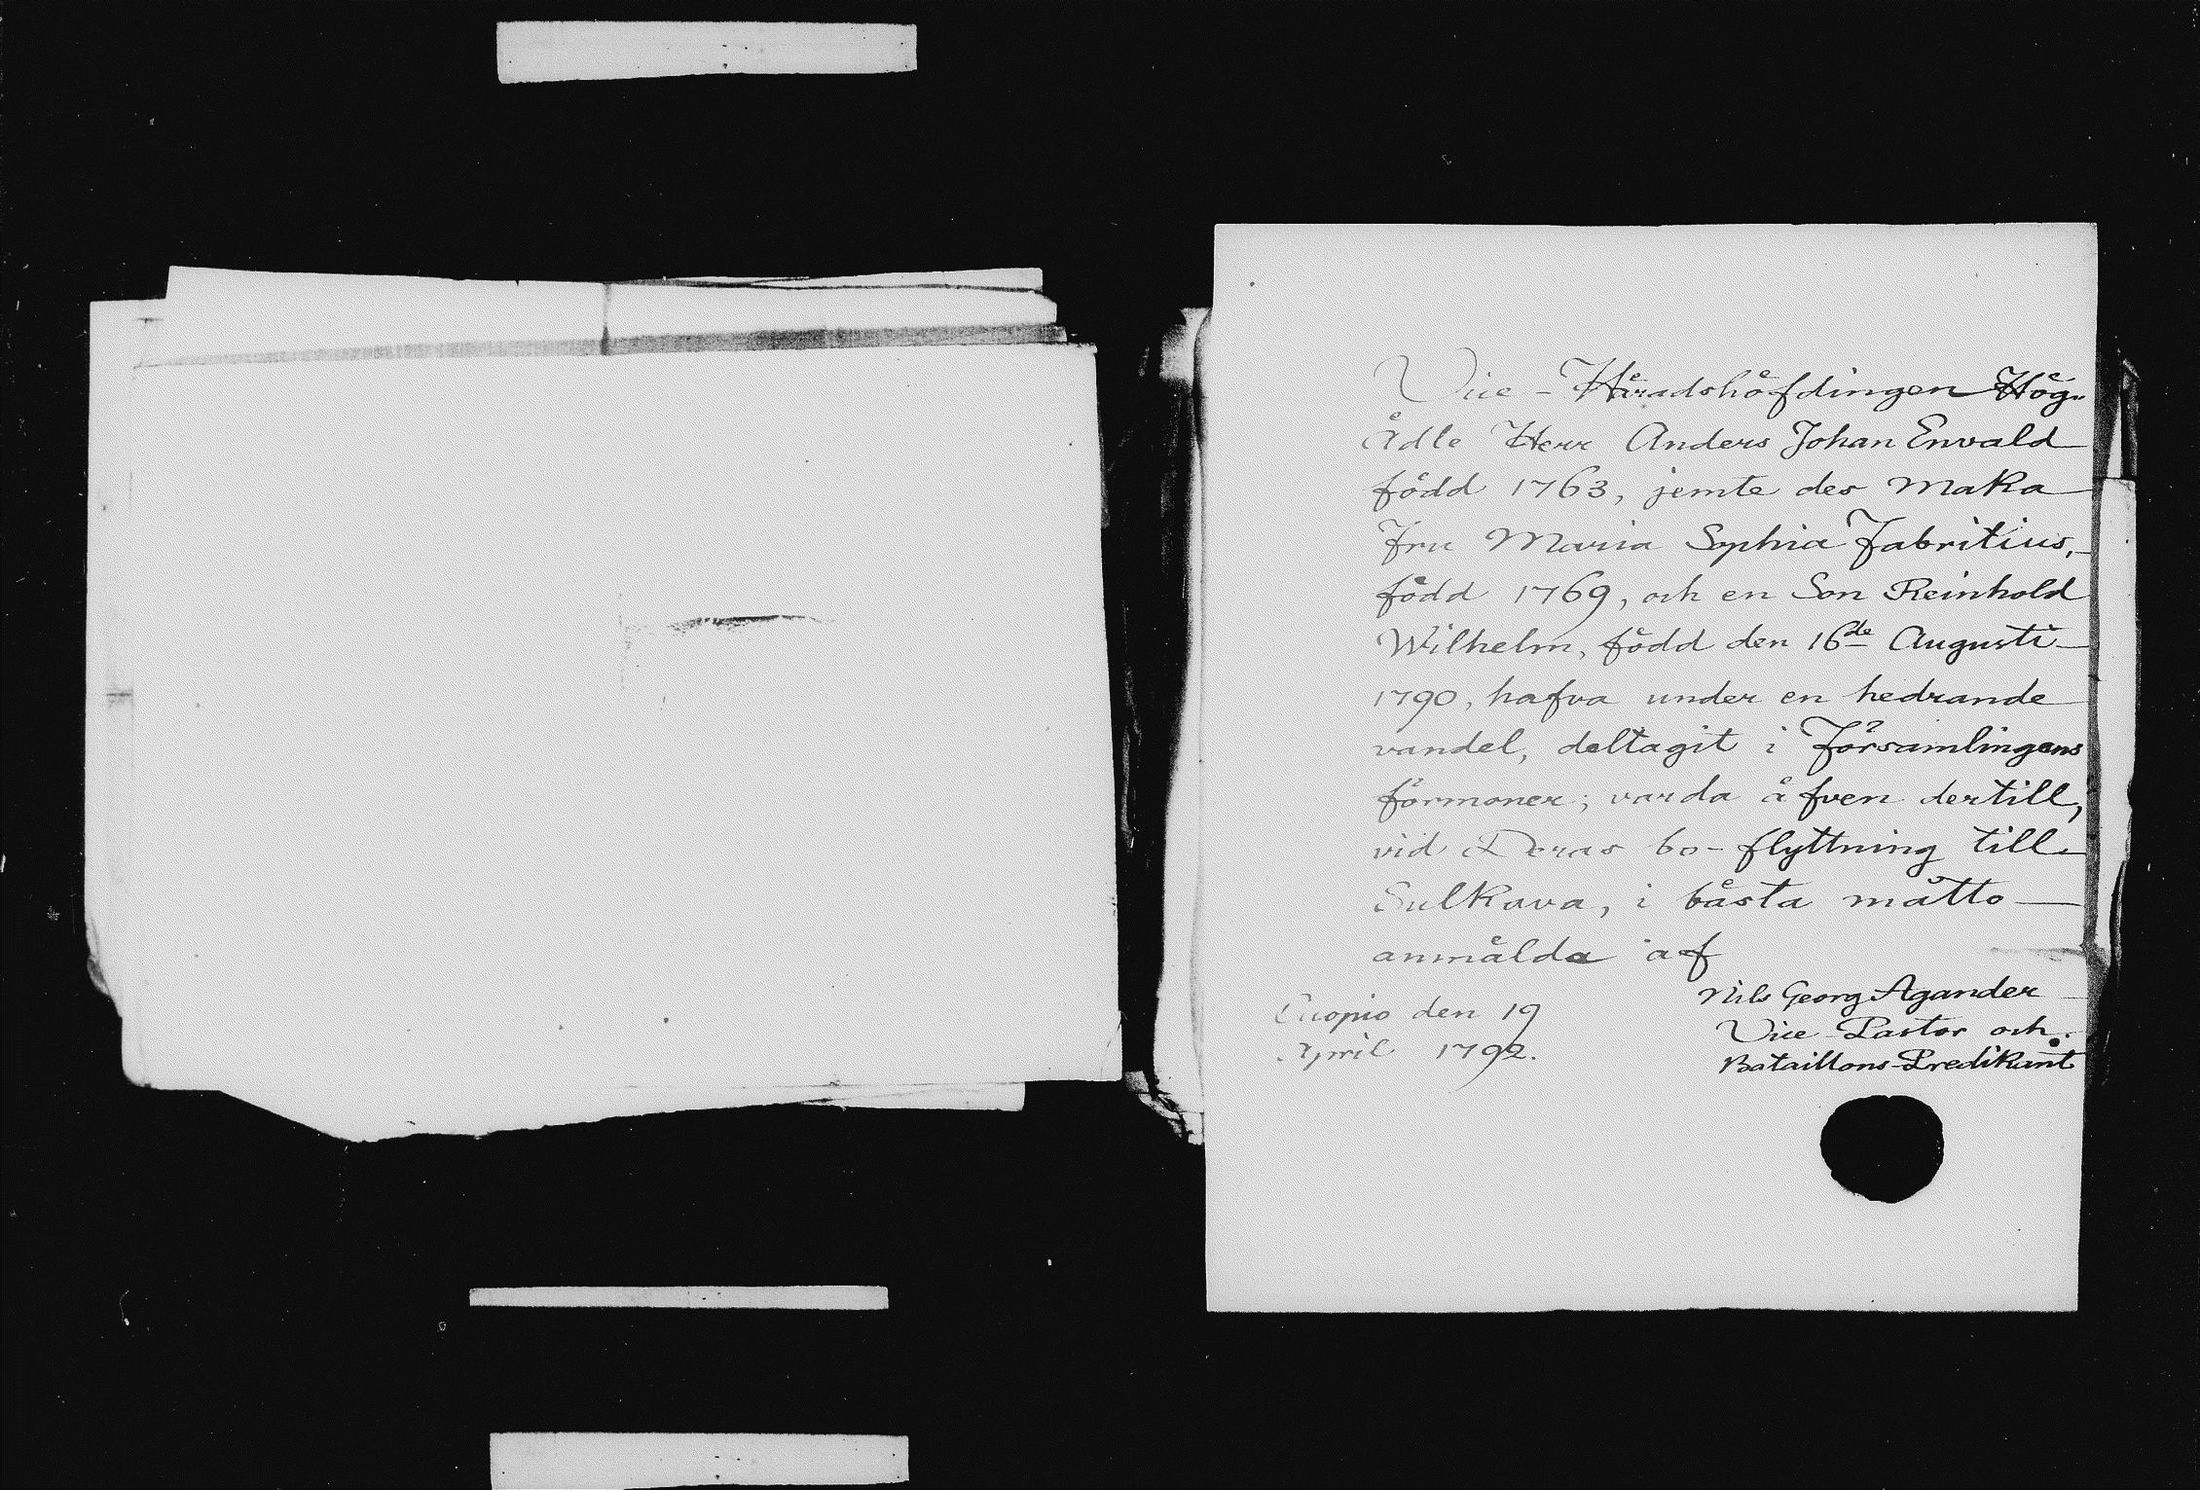 Vice-Häradshöfdingen Hög-
Ädle Herr Anders Johan Envald
född 1763, jemte des Maka
Fru Maria Sophia Fabritius,
född 1769, och en Son Reinhold
Wilhelm, född den 16de Augusti
1790, hafva under en hedrande
vandel, deltagit i Församlingens
förmoner; varda äfven dertill,
vid Deras bo-flyttning till
Sulkava, i bästa måtto
anmälda af
Nils Georg Agander
Vice Pastor och
Bataillons-Predikant
Cuopio den 19
April 1792.